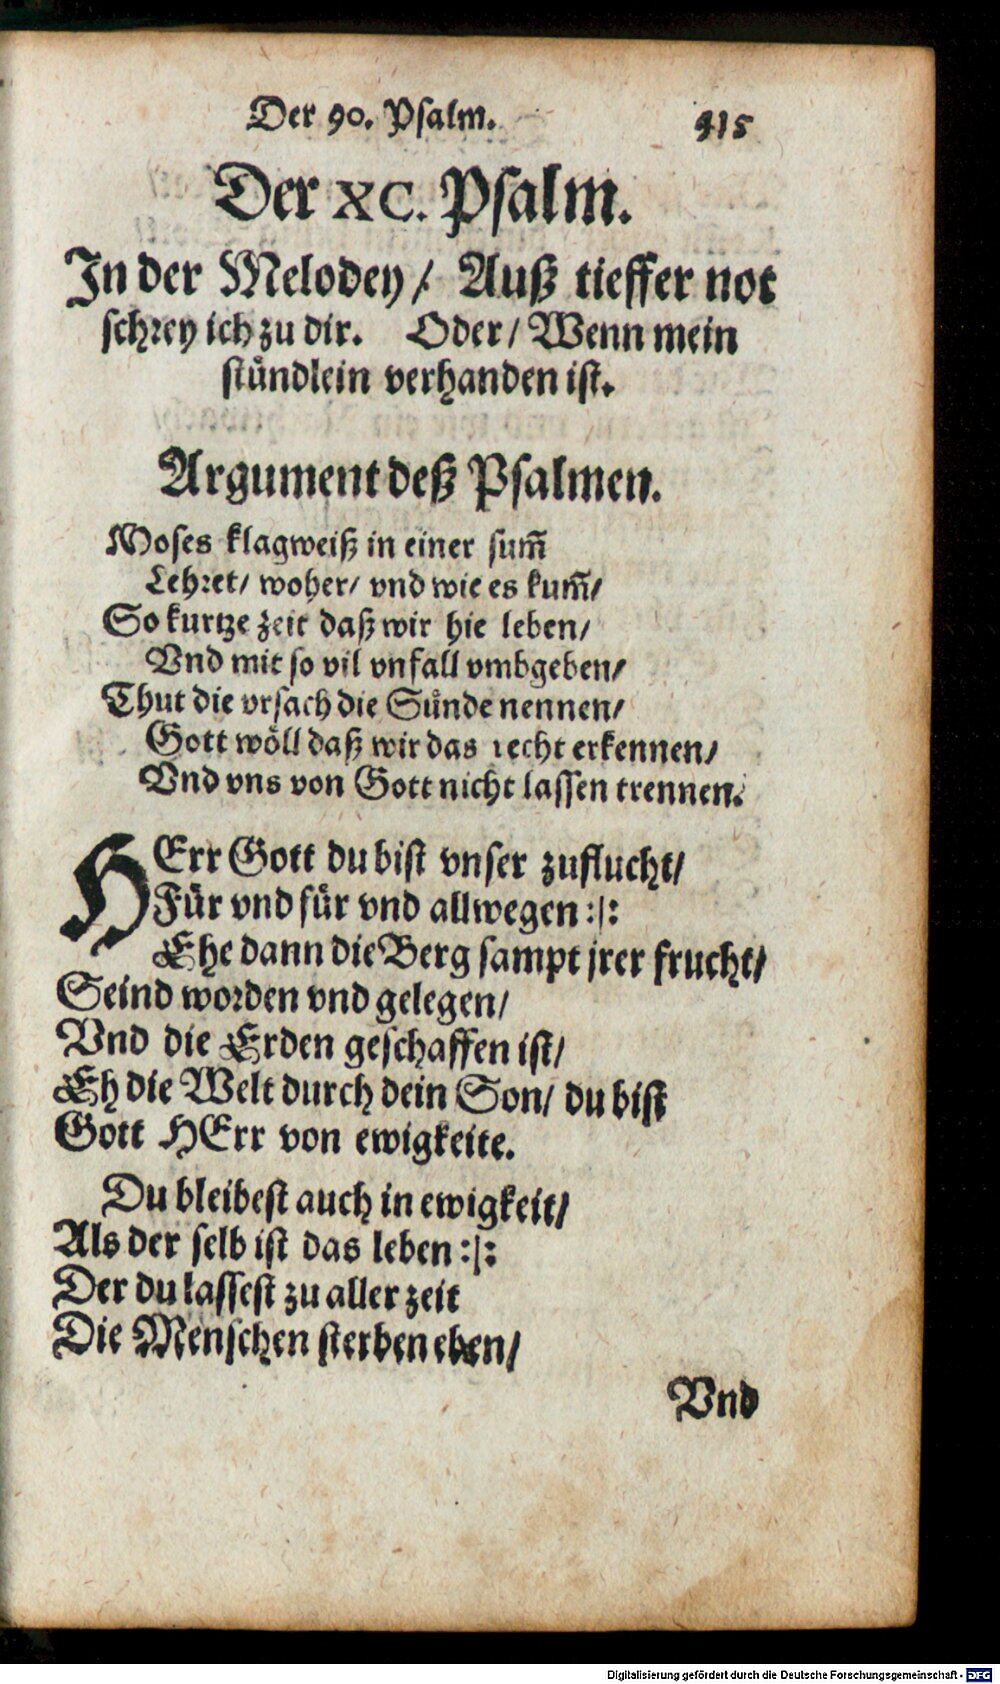 Der 90. Psalm. 415
Der XC. Psalm.
In der Melodey/ Auß tieffer not
schrey ich zu dir. Oder/ Wenn mein
stündlein verhanden ist.
Argument deß Psalmen.
Moses klagweiß in einer sum̃
Lehret/ woher/ vnd wie es kum̃/
So kurtze zeit daß wir hie leben/
Vnd mit so vil vnfall vmbgeben/
Thut die vrsach die Sünde nennen/
Gott wöll daß wir das recht erkennen/
Vnd vns von Gott nicht lassen trennen.
HErr Gott du bist vnser zuflucht/
Für vnd für vnd allwegen :|:
Ehe dann die Berg sampt jrer frucht/
Seind worden vnd gelegen/
Vnd die Erden geschaffen ist/
Eh die Welt durch dein Son/ du bist
Gott HErr von ewigkeite.
Du bleibest auch in ewigkeit/
Als der selb ist das leben :|:
Der du lassest zu aller zeit
Die Menschen sterben eben/
Vnd
Digitalisierung gefördert durch die Deutsche Forschungsgemeinschaft - DFG